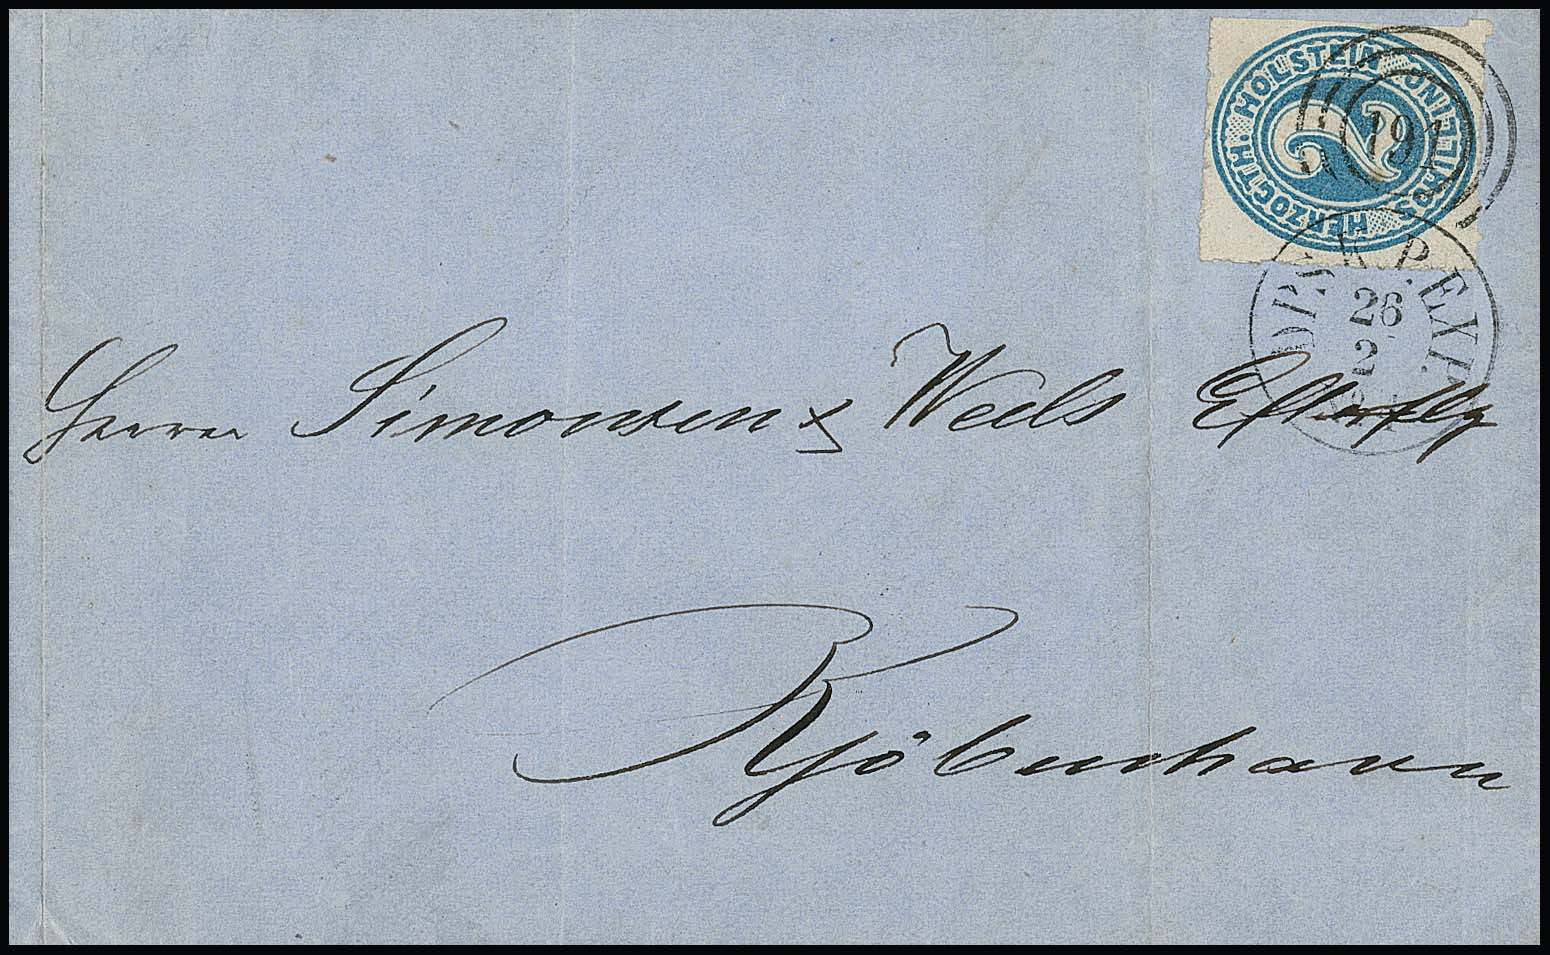 HERZOGTH. HOLSTEIN
2
191
P. EXP.
28
2
Herren Simonsen & Weels Efterflg
Kjöbenhavn